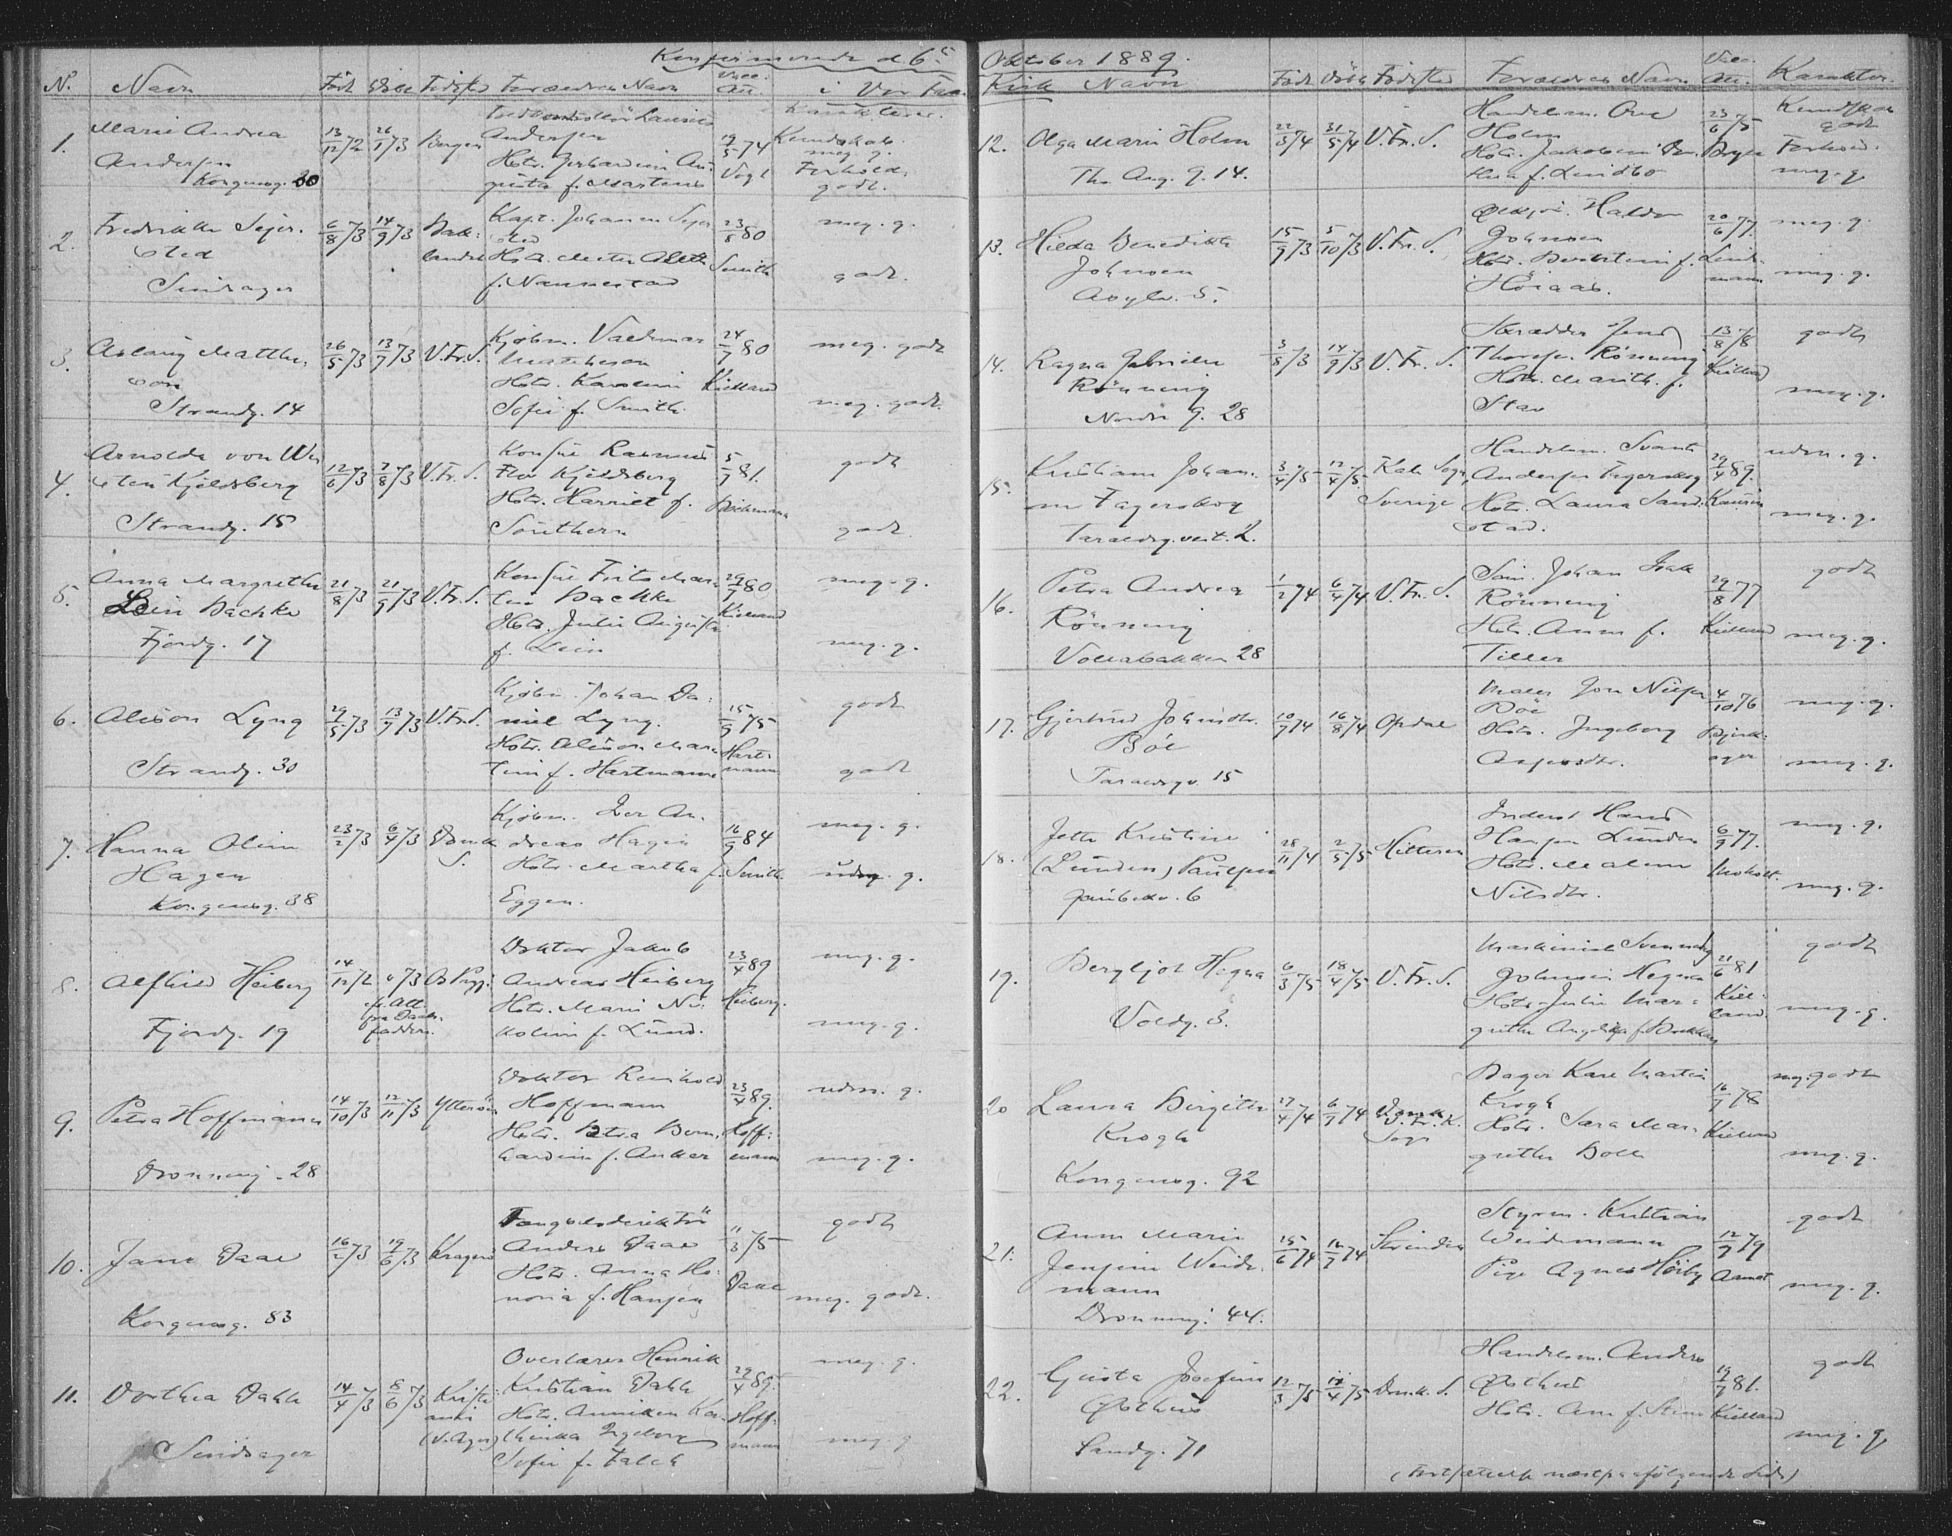 Konfirmerede d. 6te
N. Navn Født Døbt Fødested Forældres Navn Vacc. Att. i Vor Frue
Karakterer.
1. Marie Andrea Andersen
Kongensg. 30
13/12 72 26/1 73 Bergen
Andersen
Hstr. f. Martens
19/5 74 Vogt
Kundskab meg. g.
Forhold. godt.
2. Fredrikke Sejersted
Sindsager
6/8 73 14/9 73 Baklandet
Kapt. Johannes Sejersted
Hstr. f. Nannestad
23/8 80 Smith
meg. g.
godt.
3. Aslaug Mattheson
Strandg. 14
26/5 73 13/7 73 V. Fr. S.
Kjøbm. Valdemar Mattheson
Hstr. Karoline Sofie f. Smith.
24/7 80 Kielland
meg. godt
meg. godt.
4. Arnolda von Westen Kjeldsberg
Strandg. 15
12/6 73 7/8 73 V. Fr. S.
Konsul Rasmus Fler Kjeldsberg
Hstr. Harriet f. Southern
5/7 81.
godt
godt.
5. Anna Margrethe Lein Bachke
Fjordg. 17
21/8 73 21/9 73 V. Fr. S.
Konsul Frits Bachke
Hstr. Julie Augusta f. Lein
29/7 80 Kielland
meg. g.
meg. g.
6. Alison Lyng
Strandg. 30
29/5 73 13/7 73 V. Fr. S.
Kjøbm. Johan Daniel Lyng.
Hstr. Alison f. Hartmann
15/9 75 Hartmann
godt
godt
7. Hanna Oline Hagen
Kongensg. 38
23/2 73 6/4 73 Domk. S.
Kjøbm. Iver Andreas Hagen
Hstr. Martha f. Eggen.
16/9 84 Smith
meg. g.
udm. g.
8. Alfhild Heiberg
Fjordg. 19
14/12 72
Doktor Jakob Andreas Heiberg
Hstr. Marie Nikoline f. Lund.
23/4 89 Heiberg.
meg. g.
meg. g.
9. Petra Hoffmann
Dronning. 28
14/10 73 12/11 73 Ytterøen
Doktor Reinhold Hoffmann
Hstr. Petra Bernhardine f. Anker
23/4 89. Hoffmann
udm. g.
meg. g.
10. Jane Daae
Kongensg. 83
16/2 73 19/6 73 Kragerø
Fængselsdirektør Anders Daae
Hstr. Anna Honoria f. Hansen
11/3 75 Daae
godt
meg. godt.
11. Dorthea Dahl
Sindsager
14/4 73 8/6 73 Kristiania (V. Ager)
Overlærer Henrik Kristian Dahl
Hstr. Anniken Kathinka Ingeborg Sofie f. Falck
29/4 89. Hoffmann
meg. g.
meg. g
Oktober 1889.
Kirke Navn Født Døbt Fødested Forældres Navn Vac. Att. Karakter.
12. Olga Marie Holm
Th. Aug. g. 14.
22/3 74 31/5 74 V. Fr. S.
Handelsm. Ove Holm
Hstr. f. Lindbo
23/6 75
Kundskab godt
Forhold. meg. g.
13. Hilda Benedikte Johnsen
Asylv. 5.
15/9 73 5/10 73 V. Fr. S.
Haldor Johnsen
Hstr. f. Høiaas.
20/6 77. Lindmann
meg. g.
meg. g.
14. Ragna Gabrielle Rønning
Nordre g. 28
3/8 73 14/9 73 V. Fr. S.
Skrædder Jens Thoresen Rønning
Hstr. Marith f. Stav
13/8 78 Kielland
godt
meg. g.
15. Kristiane Johanne Fagerskog
Taraldsg. vest. 2.
3/4 75 12/4 75 Sverige
Handelsm. Svante Andersen Fagerskog
Hstr. Laura Sandstad.
29/4 89.
udm. g.
meg. g.
16. Petra Andrea Rønning
Vollabakken 28
1/2 74 6/4 74 V. Fr. S
Johan Rønning
Hstr. Anne f. Tiller
29/8 77 Kielland
godt
meg. g.
17. Gjertrud Johnsdtr. Bøe
Taraldsgv. 15
10/7 74 16/8 74 Opdal
Maler Jon Nilsen Bøe
Hstr. Ingeborg
4/10 76
meg. g.
meg. g.
18. Jette Kristine (Lunden) Paulsen
6
28/11 74 2/5 75 Hitteren
Inderst Hans Hansen Lunden
Hstr. Malene Nilsdtr.
6/9 77.
meg. g.
meg. g.
19. Bergljot Hegna
Voldg. 3.
6/3 75 18/4 75 V. Fr. S.
Maskinist Svennung Johnsen Hegna
Hstr. Julie Margrethe
21/6 81 Kielland
godt
meg. g.
20 Laura Birgitte Krogh
Kongensg. 92
27/4 74 6/7 74
Bager Karl Martin Krogh
Hstr. Sara Margrethe Boll
16/7 78 Kielland
meg. godt
meg. g.
21. Anne Marie Jensine Weidemann
Dronning. 44.
15/6 74 12/7 74 Strinden
Styrm. Kristian Weidemann
Pige Agnes Høiby
12/7 79
godt
meg. g.
22. Gusta Josefine Østhus
Sandg. 71
12/3 75 14/4 75 Domk. S.
Handelsm. Anders Østhus
Hstr. Ane f.
19/7 81. Kielland
godt
meg. g.
(Fortsættelse næstpaafølgende Side)